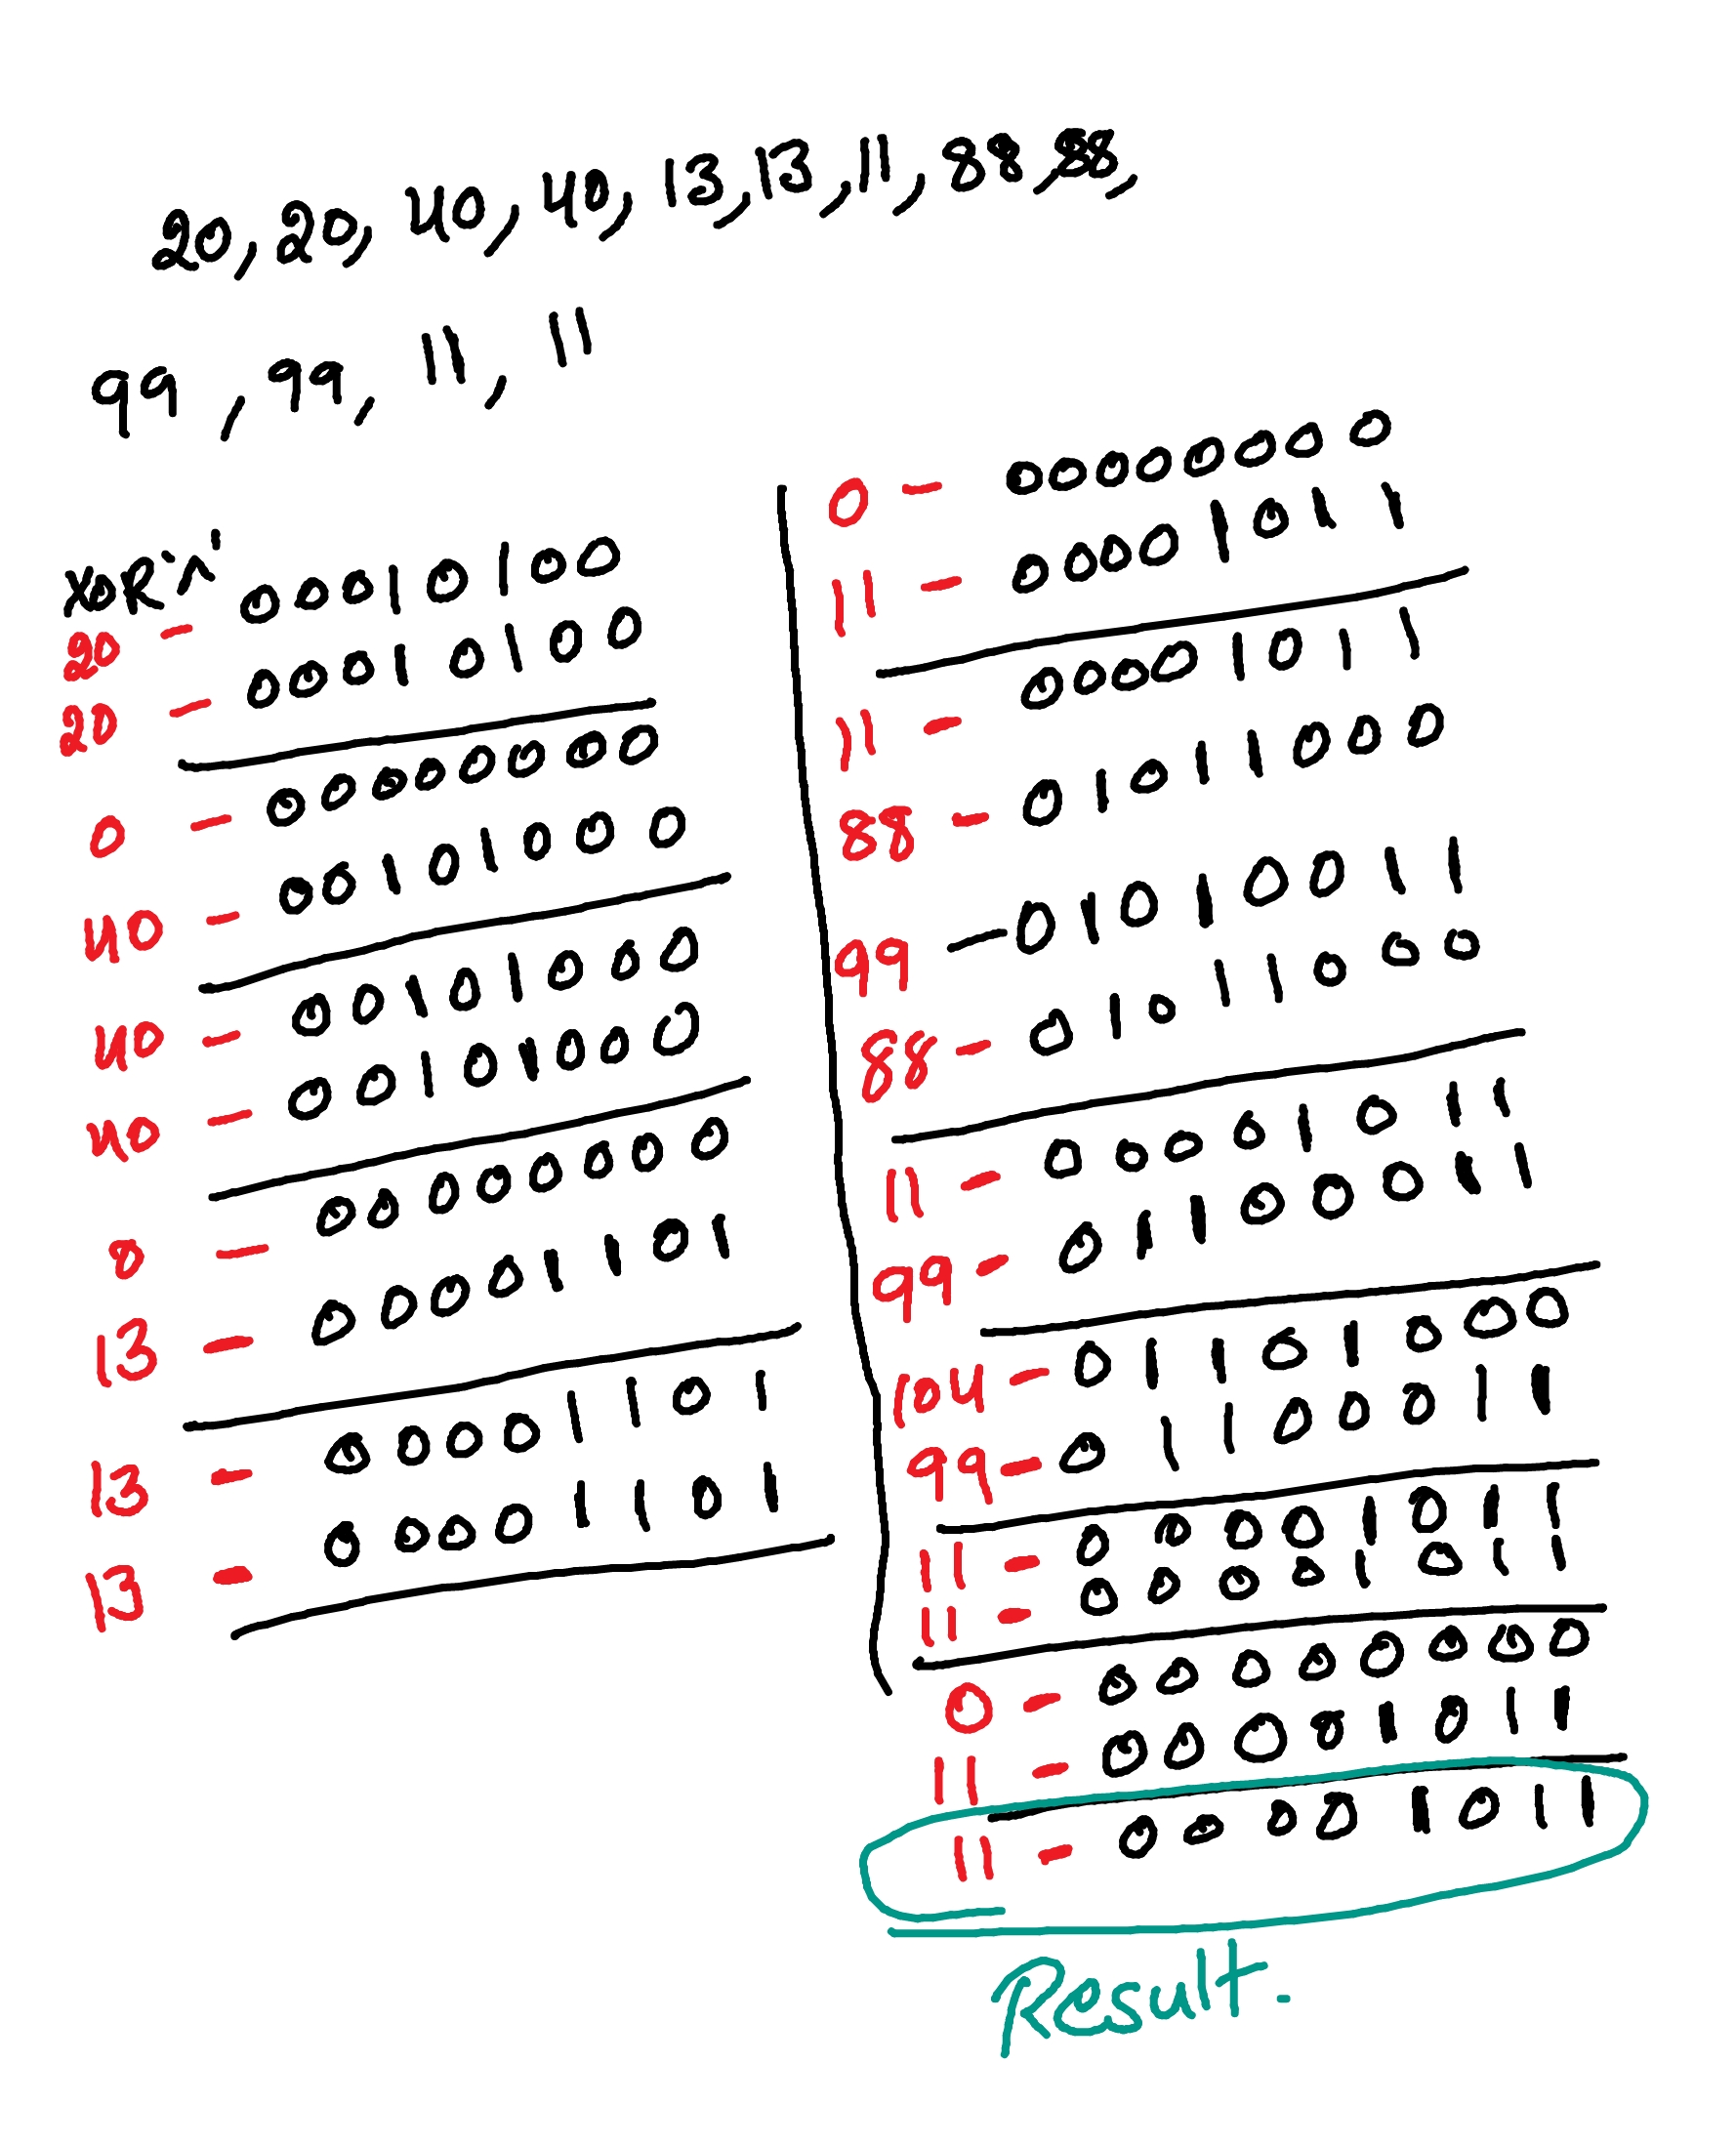 20, 20, 40, 40, 13, 13, 11, 88, 88,
99, 99, 11, 11
XOR '^'
20 - 00010100
20 - 00010100
0 - 00000000
40 - 00101000
40 - 00101000
40 - 00101000
0 - 00000000
13 - 00001101
13 - 00001101
13 - 00001101
0 - 00000000
11 - 00001011
11 - 00001011
88 - 01011000
99 - 01010011
88 - 01011000
11 - 00001011
99 - 01100011
104 - 01101000
99 - 01100011
11 - 00001011
11 - 00001011
0 - 00000000
11 - 00001011
11 - 00001011
Result.